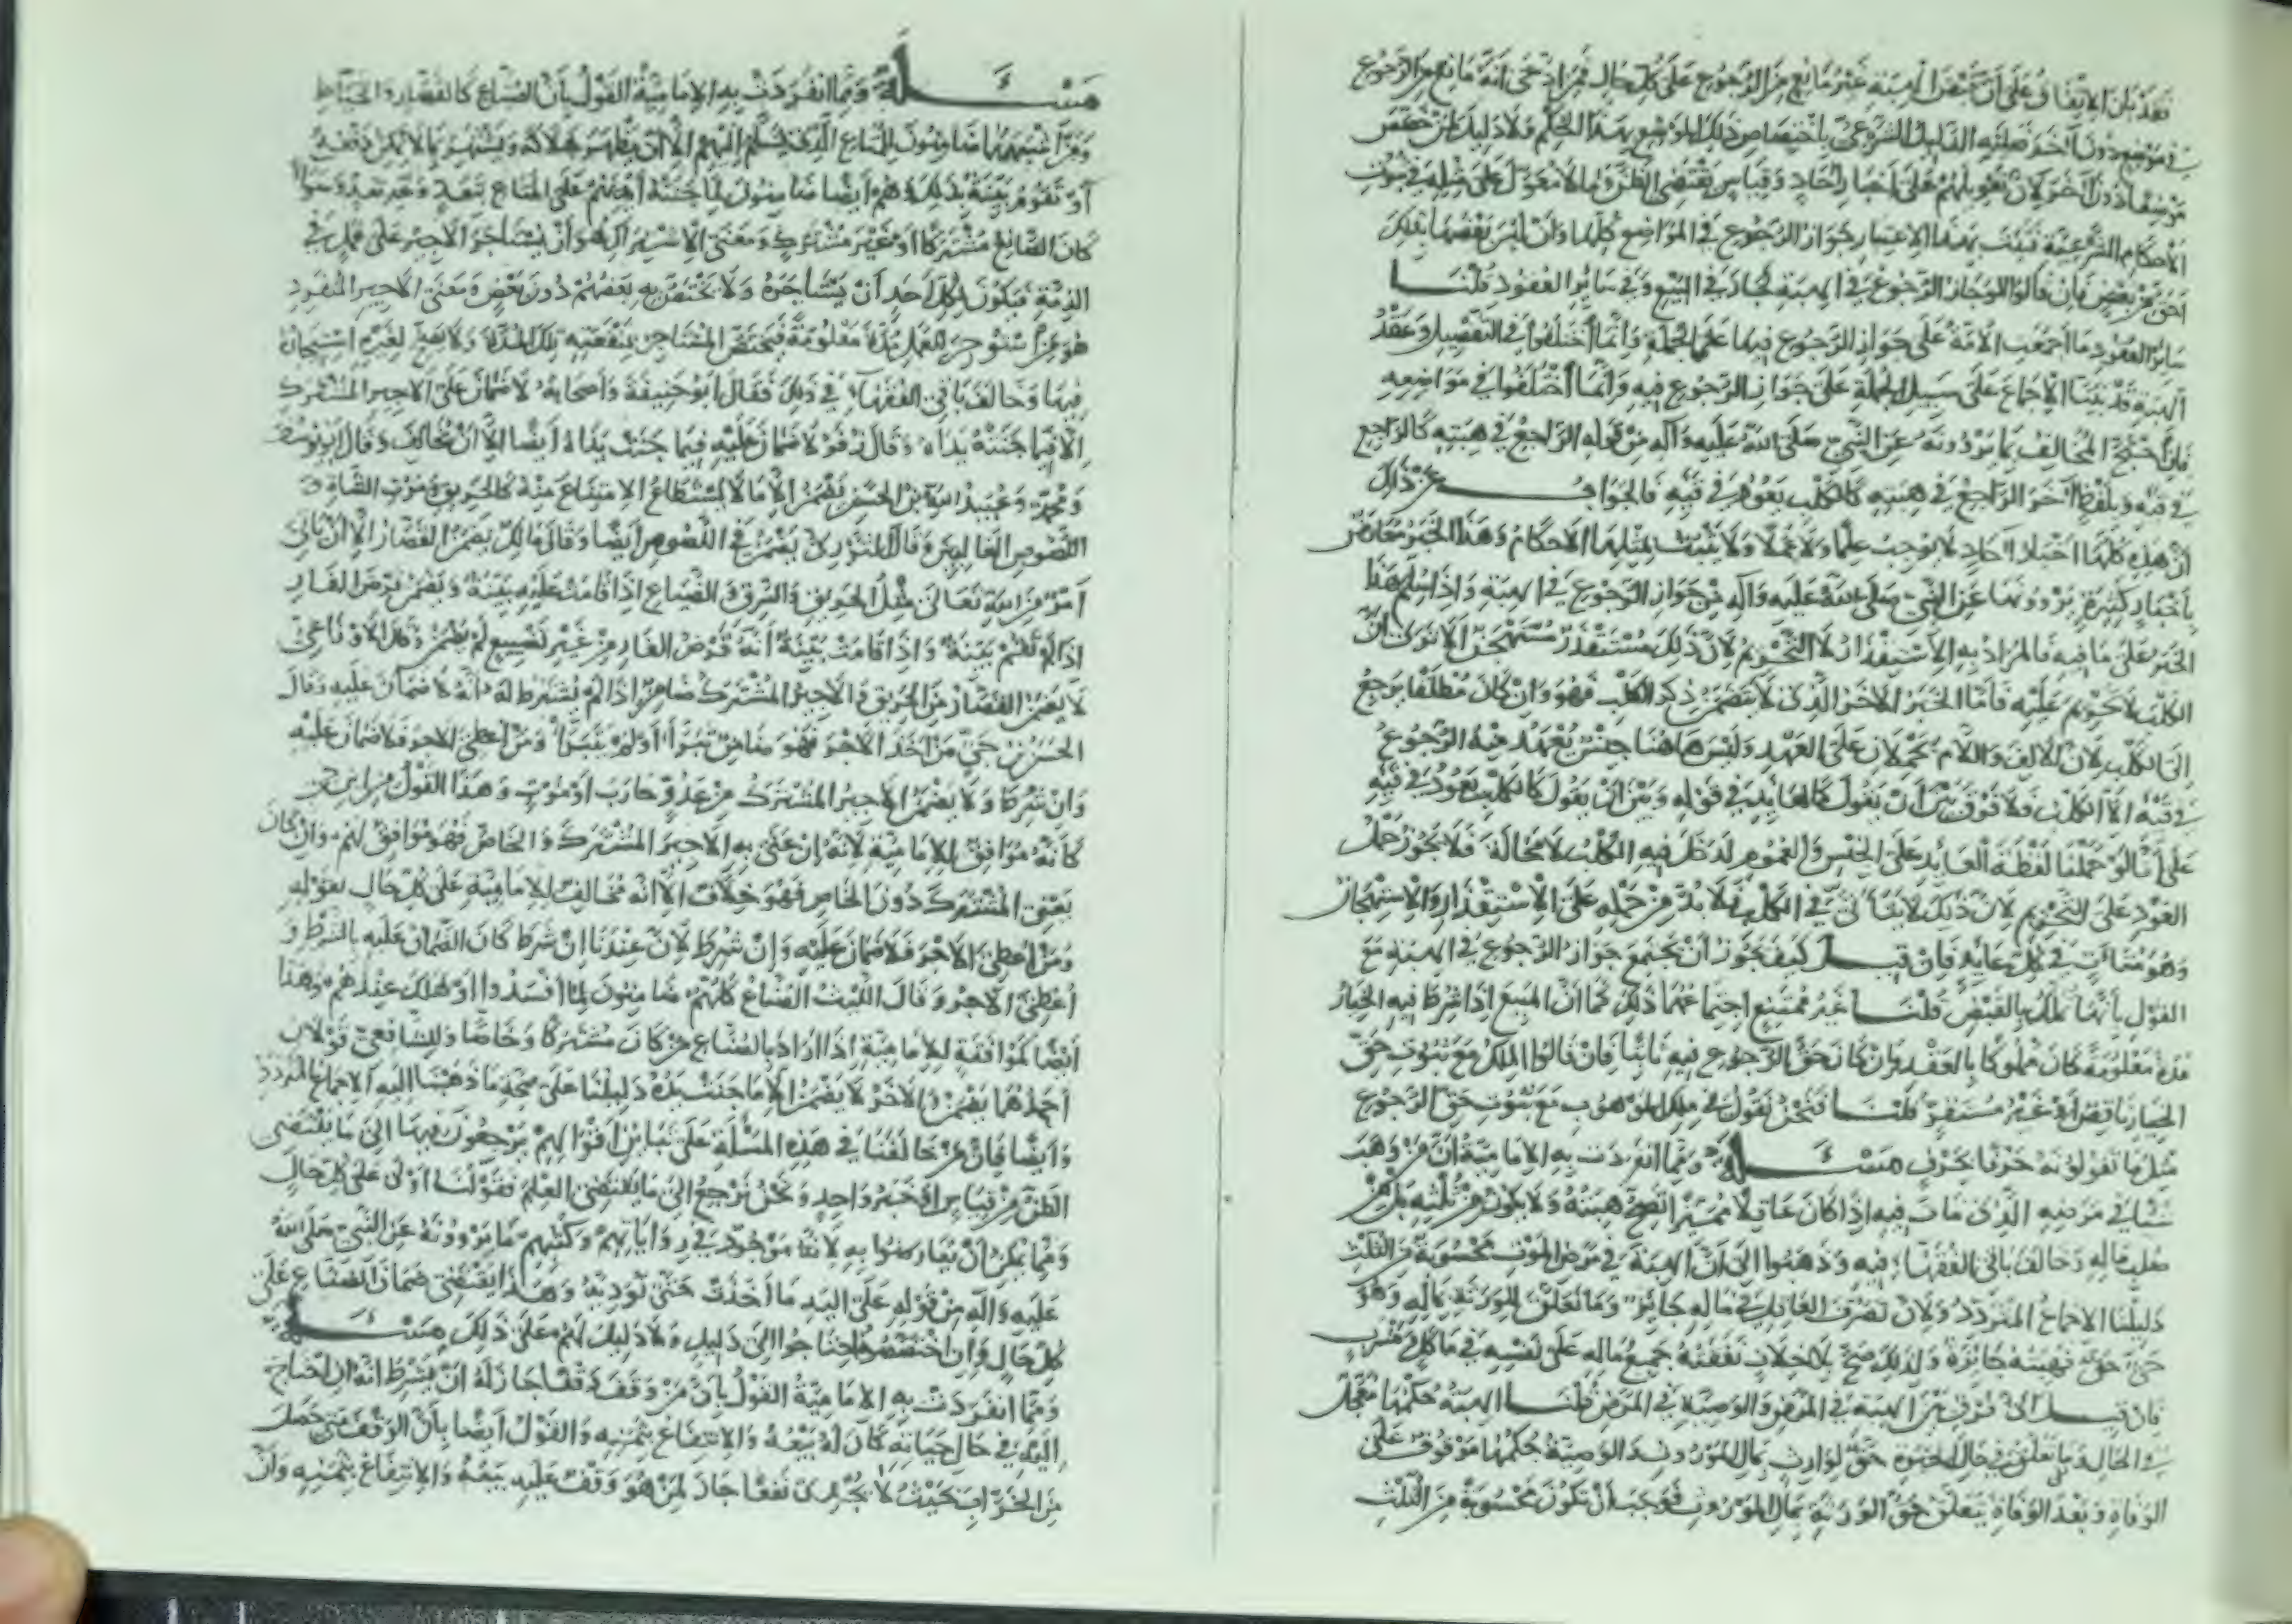 فقد بان الاتفاق على أن نقض الهبة غير مانع من الرجوع على كل حال فمن ادعى أنه مانع من الرجوع
في موضع دون آخر فعليه الدليل الشرعي باختصاص ذلك الموضع بهذا الحكم ولا دليل لمن خصص
موضعا دون آخر لأن تعويلهم على أخبار آحاد وقياس يقتضي الظن وما لا معول على مثله في ثبوت
الأحكام الشرعية فثبت بهذا الاعتبار جواز الرجوع في المواضع كلها وأن ليس بعضها بذلك
أحق من بعض فإن قالوا لو جاز الرجوع في الهبة لجاز في البيع وفي سائر العقود قلنا
سائر العقود ما أجمعت الأمة على جواز الرجوع فيها على الجملة وإنما اختلفوا في التفصيل وعقد
الهبة قد بينا الإجماع على سبيل الجملة على جواز الرجوع فيه وإنما اختلفوا في مواضعه
فإن احتج المخالف بما يروونه عن النبي صلى الله عليه وآله من قوله الراجع في هبته كالراجع
في قيئه وبلفظ آخر الراجع في هبته كالكلب يعود في قيئه فالجواب عن ذلك
أن هذه كلها أخبار آحاد لا توجب علما ولا عملا ولا يثبت بمثلها الأحكام وهذا الخبر معارض
بأخبار كثيرة يروونها عن النبي صلى الله عليه وآله في جواز الرجوع في الهبة وإذا سلم هذا
الخبر على ما فيه فالمراد به الاستقذار لا التحريم لأن ذلك مستقذر مستهجن ألا ترى أن
الكلب لا تحريم عليه فأما الخبر الآخر الذي لا يتضمن ذكر الكلب فهو وإن كان مطلقا يرجع
إلى الكلب لأن الألف واللام يحملان على العهد وليس هاهنا جنس يعهد فيه الرجوع
في قيئه إلا الكلب فلا فرق بين أن يقول كالعايد في قوله وبين أن يقول كالكلب يعود في قيئه
على أنا لو حملنا لفظة العايد على الجنس والعموم لدخل فيه الكلب لا محالة فلا يجوز حمل
العود على التحريم لأن ذلك لا يتأتى في الكلب فلا بد من حمله على الاستقذار والاستهجان
وهو متأت في كل عايد فإن قيل كيف يجوز أن يجتمع جواز الرجوع في الهبة مع
القول بأنها تملك بالقبض قلنا غير ممتنع اجتماعهما ذلك كما أن المبيع إذا شرط فيه الخيار
مدة معلومة كان مملوكا بالعقد وإن كان حق الرجوع فيه ثابتا فإن قالوا الملك مع ثبوت حق
الخيار ناقص أو غير مستقر قلنا فنحن نقول في ملك الموهوب مع ثبوت حق الرجوع
مثل ما تقولونه حرفا بحرف مسألة ومما انفردت به الإمامية أن من وهب
شيئا في مرضه الذي مات فيه إذا كان عاقلا مميزا تصح هبته ولا يكون من ثلثه بل من
صلب ماله وخالف باقي الفقهاء فيه وذهبوا إلى أن الهبة في مرض الموت محسوبة من الثلث
دليلنا الإجماع المتردد ولأن تصرف العاقل في ماله جائز وما تعلق للورثة بماله وهو
حي حق فهبته جائزة ولذلك صح بلا خلاف نفقة جميع ماله على نفسه في مأكل ومشرب
فإن قيل أي فرق بين الهبة في المرض والوصية في المرض قلنا الهبة حكمها معجل
في الحال وما تعلق في حال الحيوة حق لوارث بمال الموروث والوصية حكمها موقوف على
الوفاة وبعد الوفاة يتعلق حق الورثة بمال الموروث فوجب أن تكون محسوبة من الثلث
مسألة ومما انفردت به الإمامية القول بأن الصناع كالقصار والخياط
ومن أشبههما ضامنون للمتاع الذي يسلم إليهم إلا أن يظهر هلاكه ويشتهر بما لا يمكن دفعه
أو تقوم بينة بذلك وهم أيضا ضامنون لما جنته أيديهم على المتاع بتعد وغير تعد وسواء
كان الصانع مشتركا أو غير مشترك ومعنى الاشتراك هو أن يستأجر الأجير على عمل في
الذمة فيكون لكل أحد أن يستأجره ولا يختص به بعضهم دون بعض ومعنى الأجير المنفرد
هو من استؤجر للعمل مدة معلومة فيختص المستأجر بمنفعته تلك المدة ولا يصح لغيره استيجاره
فيها وخالف باقي الفقهاء في ذلك فقال أبو حنيفة وأصحابه لا ضمان على الأجير المشترك
إلا فيما جنته يداه وقال زفر لا ضمان عليه فيما جنت يداه أيضا إلا أن يخالف وقال أبو يوسف
ومحمد وعبيد الله بن الحسن يضمن إلا ما لا يستطاع الامتناع منه كالحريق وموت الشاة و
اللصوص الغالبين وقال الثوري يضمن في اللصوص أيضا وقال مالك يضمن القصار إلا أن يأتي
أمر من الله تعالى مثل الحريق والسرق والضياع إذا قامت عليه بينة ويضمن قرض الفار
إذا لم تقم بينة وإذا قامت بينة أنه قرض الفار من غير تضييع لم يضمن وقال الأوزاعي
لا يضمن القصار من الحريق والأجير المشترك ضامن إذا لم يشترط له أنه لا ضمان عليه وقال
الحسن بن حي من أخذ الأجر فهو ضامن تبرأ أو لم يتبرأ ومن أعطى الأجر فلا ضمان عليه
وإن شرط ولا يضمن الأجير المشترك من عدو حارب أو موت وهذا القول من ابن حي
كأنه موافق للإمامية لأنه إن عنى به الأجير المشترك والخاص فهو موافق لهم وإن كان
يعني المشترك دون الخاص فهو خلاف إلا أنه مخالف للإمامية على كل حال بقوله
ومن أعطى الأجر فلا ضمان عليه وإن شرط لأن عندنا إن شرط كان الضمان عليه بالشرط و
أعطى الأجر وقال الليث الصناع كلهم ضامنون لما أفسدوا أو هلك عندهم وهذا
أيضا كموافقة للإمامية إذا أراد بالصناع من كان مشتركا وخاصا وللشافعي قولان
أحدهما يضمن والآخر لا يضمن إلا ما جنت يده دليلنا على صحة ما ذهبنا إليه الإجماع المتردد
وأيضا فإن من خالفنا في هذه المسألة على تباين أقوالهم يرجعون فيها إلى ما يقتضي
الظن من قياس أو خبر واحد ونحن نرجع إلى ما يقتضي العلم فقولنا أولى على كل حال
ومما يمكن أن يعارضوا به لأنه موجود في رواياتهم وكتبهم ما يروونه عن النبي صلى الله
عليه وآله من قوله على اليد ما أخذت حتى تؤديه وهذا يقتضي ضمان الصناع على
كل حال وإن اختصصوا احتاجوا إلى دليل ولا دليل لهم على ذلك مسألة
ومما انفردت به الإمامية القول بأن من وقف وقفا جاز له أن يشترط أنه إن احتاج
إليه في حال حياته كان له بيعه والانتفاع بثمنه والقول أيضا بأن الوقف متى حصل
من الخراب بحيث لا يجدى نفعا جاز لمن هو وقف عليه بيعه والانتفاع بثمنه وأن